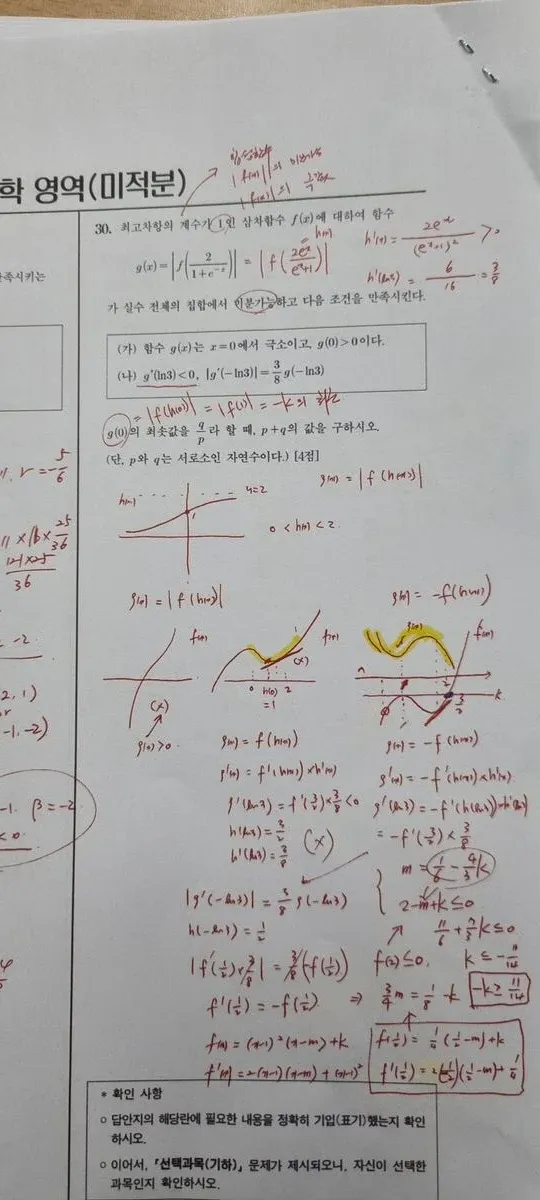 학 영역(미적분)
합성함수
|f(x)|의 미분가능
|f(x)|의 극값
30. 최고차항의 계수가 1인 삼차함수 f(x)에 대하여 함수
g(x)=|f(2/(1+e^{-x}))| = |f(2e^x/(e^x+1))|
h(x)
h'(x) = 2e^x/(e^x+1)^2 > 0
h'(ln3) = 6/16 = 3/8
가 실수 전체의 집합에서 미분가능하고 다음 조건을 만족시킨다.
만족시키는
(가) 함수 g(x)는 x=0에서 극소이고, g(0)>0이다.
(나) g'(ln3)<0, |g'(-ln3)|=3/8 g(-ln3)
= |f(h(0))| = |f(1)| = -k의 최솟값
g(0)의 최솟값을 q/p라 할 때, p+q의 값을 구하시오.
(단, p와 q는 서로소인 자연수이다.) [4점]
g(x) = |f(h(x))|
h(x)
y=2
1
0 < h(x) < 2
r = -5/6
11 × 16 × 25/36
121×25/36
g(x) = |f(h(x))|
g(x) = -f(h(x))
f(x)
(x)
g(0)>0.
f(x)
(x)
0 h(0) 2
=1
g(x)
f(x)
2
3/2
k
= -2
2, 1)
-1, -2)
-1. β = -2
< 0.
g(x) = f(h(x))
g'(x) = f'(h(x)) × h'(x)
g'(ln3) = f'(3/2) × 3/8 < 0
h(ln3) = 3/2
h'(ln3) = 3/8
(x)
g(x) = -f(h(x))
g'(x) = -f'(h(x)) × h'(x)
g'(ln3) = -f'(h(ln3)) × h'(ln3)
= -f'(3/2) × 3/8
m = 1/6 - 4/3 k
2-m+k ≤ 0
11/6 + 7/3 k ≤ 0
|g'(-ln3)| = 3/8 g(-ln3)
h(-ln3) = 1/2
|f'(1/2) × 3/8| = 3/8 (-f(1/2))
f(2) ≤ 0.
k ≤ -11/14
f'(1/2) = -f(1/2)
⇒ 3/4 m = 1/8 - k
-k ≥ 11/14
f(x) = (x-1)^2 (x-m) + k
f'(x) = 2(x-1)(x-m) + (x-1)^2
f(1/2) = 1/4 (1/2 - m) + k
f'(1/2) = 2(-1/2)(1/2 - m) + 1/4
* 확인 사항
○ 답안지의 해당란에 필요한 내용을 정확히 기입(표기)했는지 확인
하시오.
○ 이어서, 「선택과목(기하)」 문제가 제시되오니, 자신이 선택한
과목인지 확인하시오.